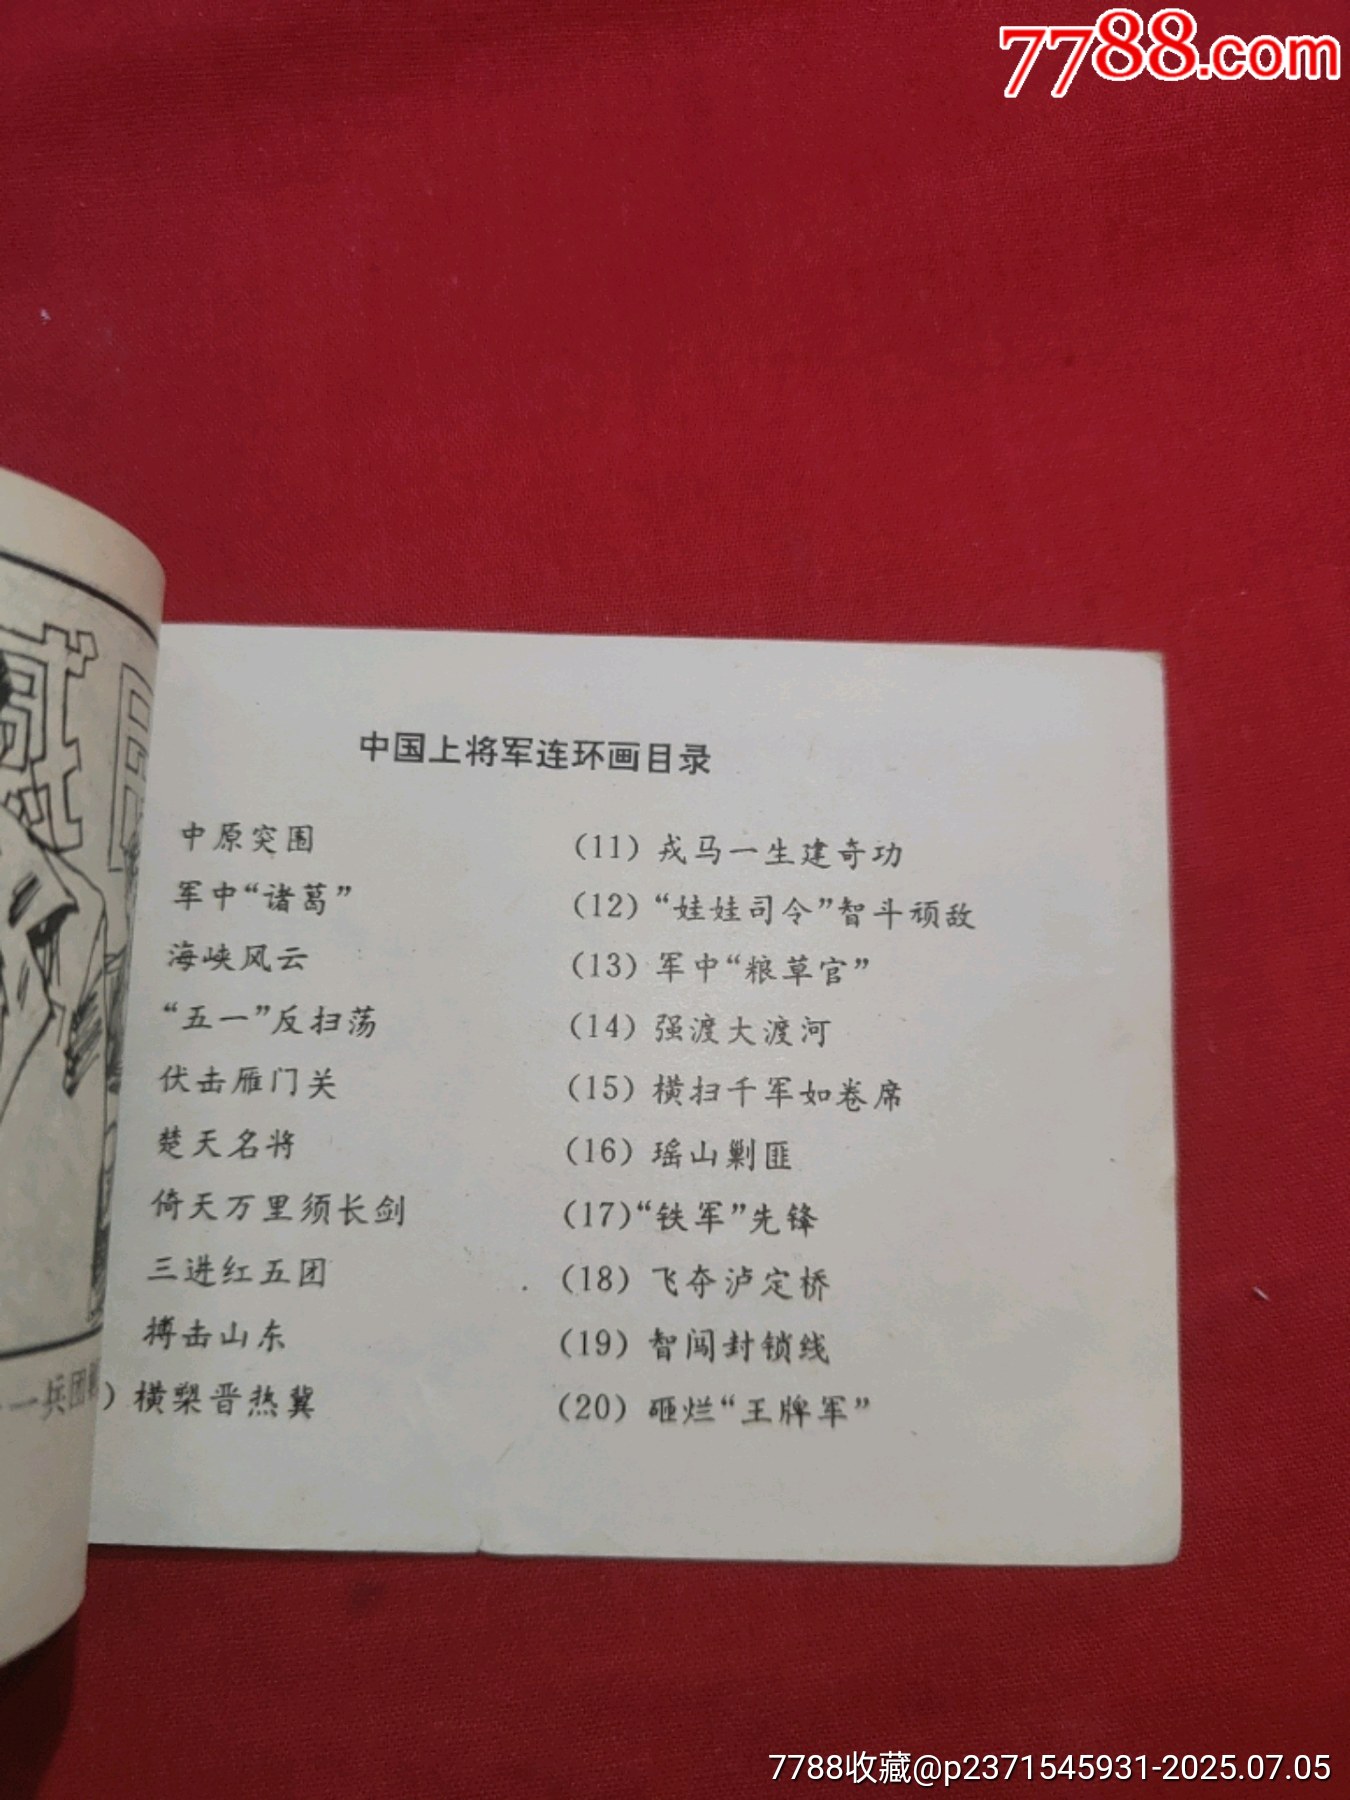 7788.com
中国上将军连环画目录
中原突围
军中“诸葛”
海峡风云
“五一”反扫荡
伏击雁门关
楚天名将
倚天万里须长剑
三进红五团
搏击山东
）横槊晋热冀
(11) 戎马一生建奇功
(12) “娃娃司令”智斗顽敌
(13) 军中“粮草官”
(14) 强渡大渡河
(15) 横扫千军如卷席
(16) 瑶山剿匪
(17)“铁军”先锋
(18) 飞夺泸定桥
(19) 智闯封锁线
(20) 砸烂“王牌军”
一兵团
7788收藏@p2371545931-2025.07.05